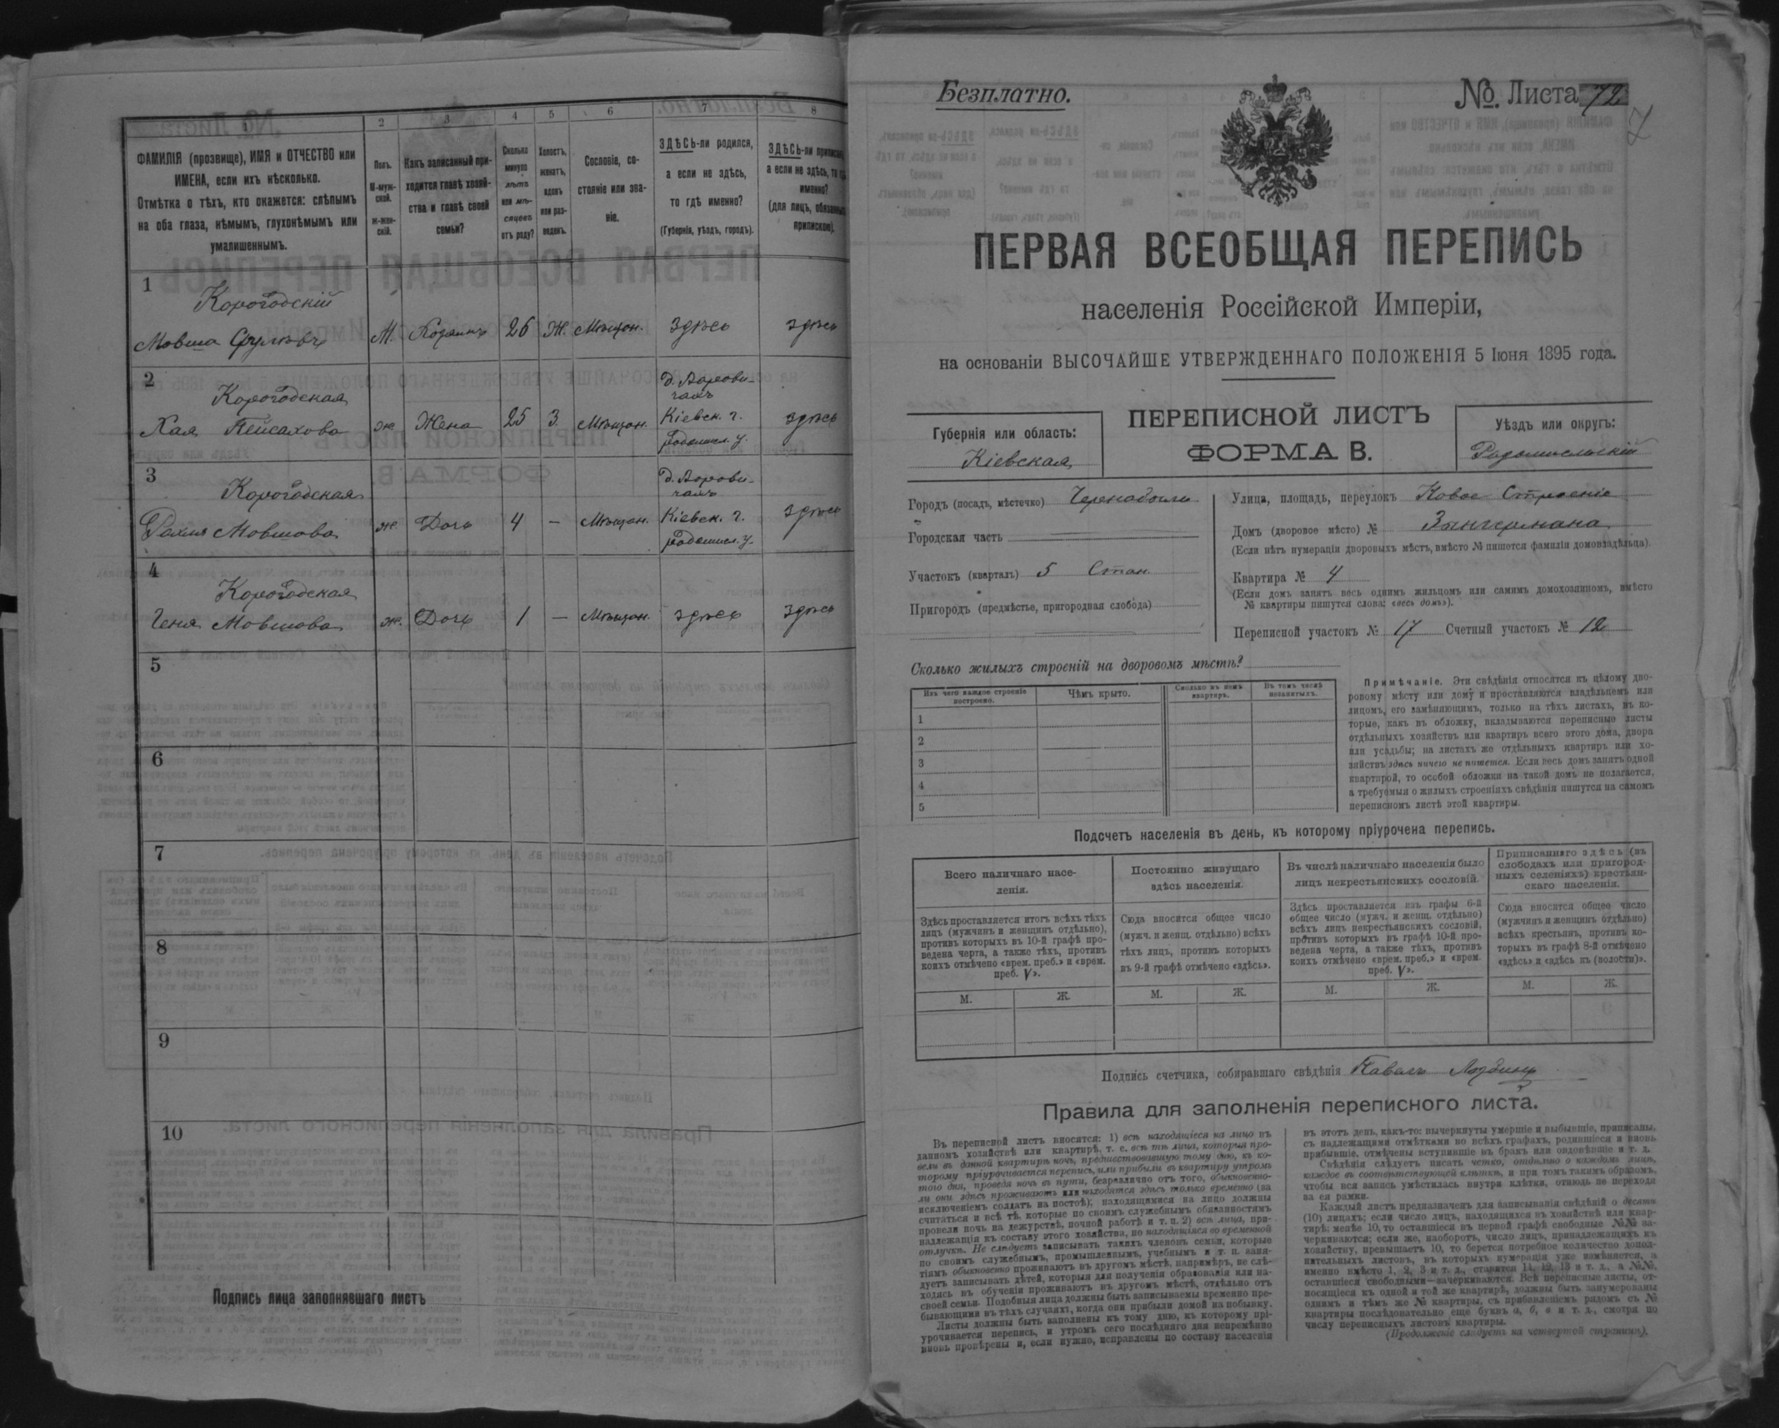 1
2
3
4
5
6
7
8
ФАМИЛІЯ (прозвище), ИМЯ и ОТЧЕСТВО или
ИМЕНА, если ихъ нѣсколько.
Отмѣтка о тѣхъ, кто окажется: слѣпымъ
на оба глаза, нѣмымъ, глухонѣмымъ или
умалишеннымъ.
Полъ.
М-муж-
ской.
ж-жен-
скій.
Какъ записанный при-
ходится главѣ хозяй-
ства и главѣ своей
семьи?
Сколько
минуло
лѣтъ
или мѣ-
сяцевъ
отъ роду?
Холостъ,
женатъ,
вдовъ
или раз-
веденъ.
Сословіе, со-
стояніе или зва-
ніе.
ЗДѢСЬ-ли родился,
а если не здѣсь,
то гдѣ именно?
(Губернія, уѣздъ, городъ).
ЗДѢСЬ-ли приписанъ,
а если не здѣсь, то гдѣ
именно?
(для лицъ, обязанныхъ
припискою).
1
Корогодскій
Мовша М. Хозяинъ 26 Ж. Мѣщан. здѣсь здѣсь
2
Корогодская
Хая Пейсахова ж Жена 25 З. Мѣщан. Кіевск. г. здѣсь
Радомысл. у.
3
Корогодская
Рахля Мовшова ж Дочь 4 — Мѣщан. Кіевск. г. здѣсь
Радомысл. у.
4
Корогодская
Геня Мовшова ж. Дочь 1 — Мѣщан. здѣсь здѣсь
5
6
7
8
9
10
Подпись лица заполнявшаго листъ
Безплатно.
№. Листа 72
ПЕРВАЯ ВСЕОБЩАЯ ПЕРЕПИСЬ
населенія Россійской Имперіи,
на основаніи ВЫСОЧАЙШЕ УТВЕРЖДЕННАГО ПОЛОЖЕНІЯ 5 Іюня 1895 года.
Губернія или область:
Кіевская
ПЕРЕПИСНОЙ ЛИСТЪ
ФОРМА В.
Уѣздъ или округъ:
Радомысльскій
Городъ (посадъ, мѣстечко) Чернобыль
Городская часть
Участокъ (кварталъ) 5 Стан
Пригородъ (предмѣстье, пригородная слобода)
Улица, площадь, переулокъ Новое Строеніе
Домъ (дворовое мѣсто) № Зингермана
(Если нѣтъ нумераціи дворовыхъ мѣстъ, вмѣсто № пишется фамилія домовладѣльца)
Квартира № 4
(Если домъ занятъ весь однимъ жильцомъ или самимъ домохозяиномъ, вмѣсто
№ квартиры пишутся слова: «весь домъ»).
Переписной участокъ № 17 Счетный участокъ № 12
Сколько жилыхъ строеній на дворовомъ мѣстѣ?
Изъ чего каждое строеніе
построено.
Чѣмъ крыто.
Сколько въ немъ
квартиръ.
Въ томъ числѣ
незанятыхъ.
1
2
3
4
5
Примѣчаніе. Эти свѣдѣнія относятся къ цѣлому дво-
ровому мѣсту или дому и проставляются владѣльцемъ или
лицомъ, его замѣняющимъ, только на тѣхъ листахъ, въ ко-
торые, какъ въ обложку, вкладываются переписные листы
отдѣльныхъ хозяйствъ или квартиръ всего этого дома, двора
или усадьбы; на листахъ же отдѣльныхъ квартиръ или хо-
зяйствъ здѣсь ничего не пишется. Если весь домъ занятъ одной
квартирой, то особой обложки на такой домъ не полагается,
а требуемыя о жилыхъ строеніяхъ свѣдѣнія пишутся на самомъ
переписномъ листѣ этой квартиры.
Подсчетъ населенія въ день, къ которому пріурочена перепись.
Всего наличнаго насе-
ленія.
Постоянно живущаго
здѣсь населенія.
Въ числѣ наличнаго населенія было
лицъ некрестьянскихъ сословій.
Приписаннаго здѣсь (въ
слободахъ или пригород-
ныхъ селеніяхъ) крестьян-
скаго населенія.
Здѣсь проставляется итогъ всѣхъ тѣхъ
лицъ (мужчинъ и женщинъ отдѣльно),
противъ которыхъ въ 10-й графѣ про-
ведена черта, а также тѣхъ, противъ
коихъ отмѣчено «врем. преб.» и «врем.
преб. V».
Сюда вносится общее число
(мужч. и женщ. отдѣльно) всѣхъ
тѣхъ лицъ, противъ которыхъ
въ 9-й графѣ отмѣчено «здѣсь».
Здѣсь проставляется изъ графы 6-й
общее число (мужч. и женщ. отдѣльно)
всѣхъ лицъ некрестьянскихъ сословій,
противъ которыхъ въ графѣ 10-й про-
ведена черта, а также тѣхъ, противъ
коихъ отмѣчено «врем. преб.» и «врем.
преб. V».
Сюда вносится общее число
(мужчинъ и женщинъ отдѣльно)
всѣхъ крестьянъ, противъ ко-
торыхъ въ графѣ 8-й отмѣчено
«здѣсь» и «здѣсь къ (волости)».
М. Ж. М. Ж. М. Ж. М. Ж.
Подпись счетчика, собиравшаго свѣдѣнія
Правила для заполненія переписного листа.
Въ переписной листъ вносятся: 1) всѣ находящіеся на лицо въ
данномъ хозяйствѣ или квартирѣ, т. е. всѣ тѣ лица, которыя про-
вели въ данной квартирѣ ночь, предшествовавшую тому дню, къ ко-
торому пріурочивается перепись, или прибыли въ квартиру утромъ
того дня, проведя ночь въ пути, безразлично отъ того, обыкновенно-
ли они здѣсь проживаютъ или находятся здѣсь только временно (за
исключеніемъ солдатъ на постоѣ); находящимися на лицо должны
считаться и всѣ тѣ, которые по своимъ служебнымъ обязанностямъ
провели ночь на дежурствѣ, ночной работѣ и т. п. 2) всѣ лица, при-
надлежащія къ составу этого хозяйства, но находящіяся во временной
отлучкѣ. Не слѣдуетъ записывать такихъ членовъ семьи, которые
по своимъ служебнымъ, промышленнымъ, учебнымъ и т. п. заня-
тіямъ обыкновенно проживаютъ въ другомъ мѣстѣ, напримѣръ, не слѣ-
дуетъ записывать дѣтей, которыя для полученія образованія или на-
ходясь въ обученіи проживаютъ въ другомъ мѣстѣ, отдѣльно отъ
своей семьи. Подобныя лица должны быть записываемы временно пре-
бывающими въ тѣхъ случаяхъ, когда они прибыли домой на побывку.
Листы должны быть заполнены къ тому дню, къ которому прі-
урочивается перепись, и утромъ сего послѣдняго дня непремѣнно
вновь провѣрены и, если нужно, исправлены по составу населенія
въ этотъ день, какъ-то: вычеркнуты умершіе и выбывшіе, приписаны,
съ надлежащими отмѣтками во всѣхъ графахъ, родившіеся и вновь
прибывшіе, отмѣчены вступившіе въ бракъ или овдовѣвшіе и т. д.
Свѣдѣнія слѣдуетъ писать четко, отдѣльно о каждомъ лицѣ,
каждое въ соотвѣтствующей клѣткѣ, и при томъ такимъ образомъ,
чтобы вся запись умѣстилась внутри клѣтки, отнюдь не переходя
за ея рамки.
Каждый листъ предназначенъ для записыванія свѣдѣній о десяти
(10) лицахъ; если число лицъ, находящихся въ хозяйствѣ или квар-
тирѣ менѣе 10, то оставшіеся въ первой графѣ свободные №№ за-
черкиваются; если же, наоборотъ, число лицъ, принадлежащихъ къ
хозяйству, превышаетъ 10, то берется потребное количество допол-
нительныхъ листовъ, въ которыхъ нумерація уже измѣняется, а
именно вмѣсто 1, 2, 3 и т. д., ставится 11, 12, 13 и т. д., а №№,
оставшіеся свободными—зачеркиваются. Всѣ переписные листы, от-
носящіеся къ одной и той же квартирѣ, должны быть занумерованы
однимъ и тѣмъ же № квартиры, съ прибавленіемъ рядомъ съ №
квартиры послѣдовательно еще буквъ а, б, в и т. д., смотря по
числу переписныхъ листовъ квартиры.
(Продолженіе слѣдуетъ на четвертой страницѣ).